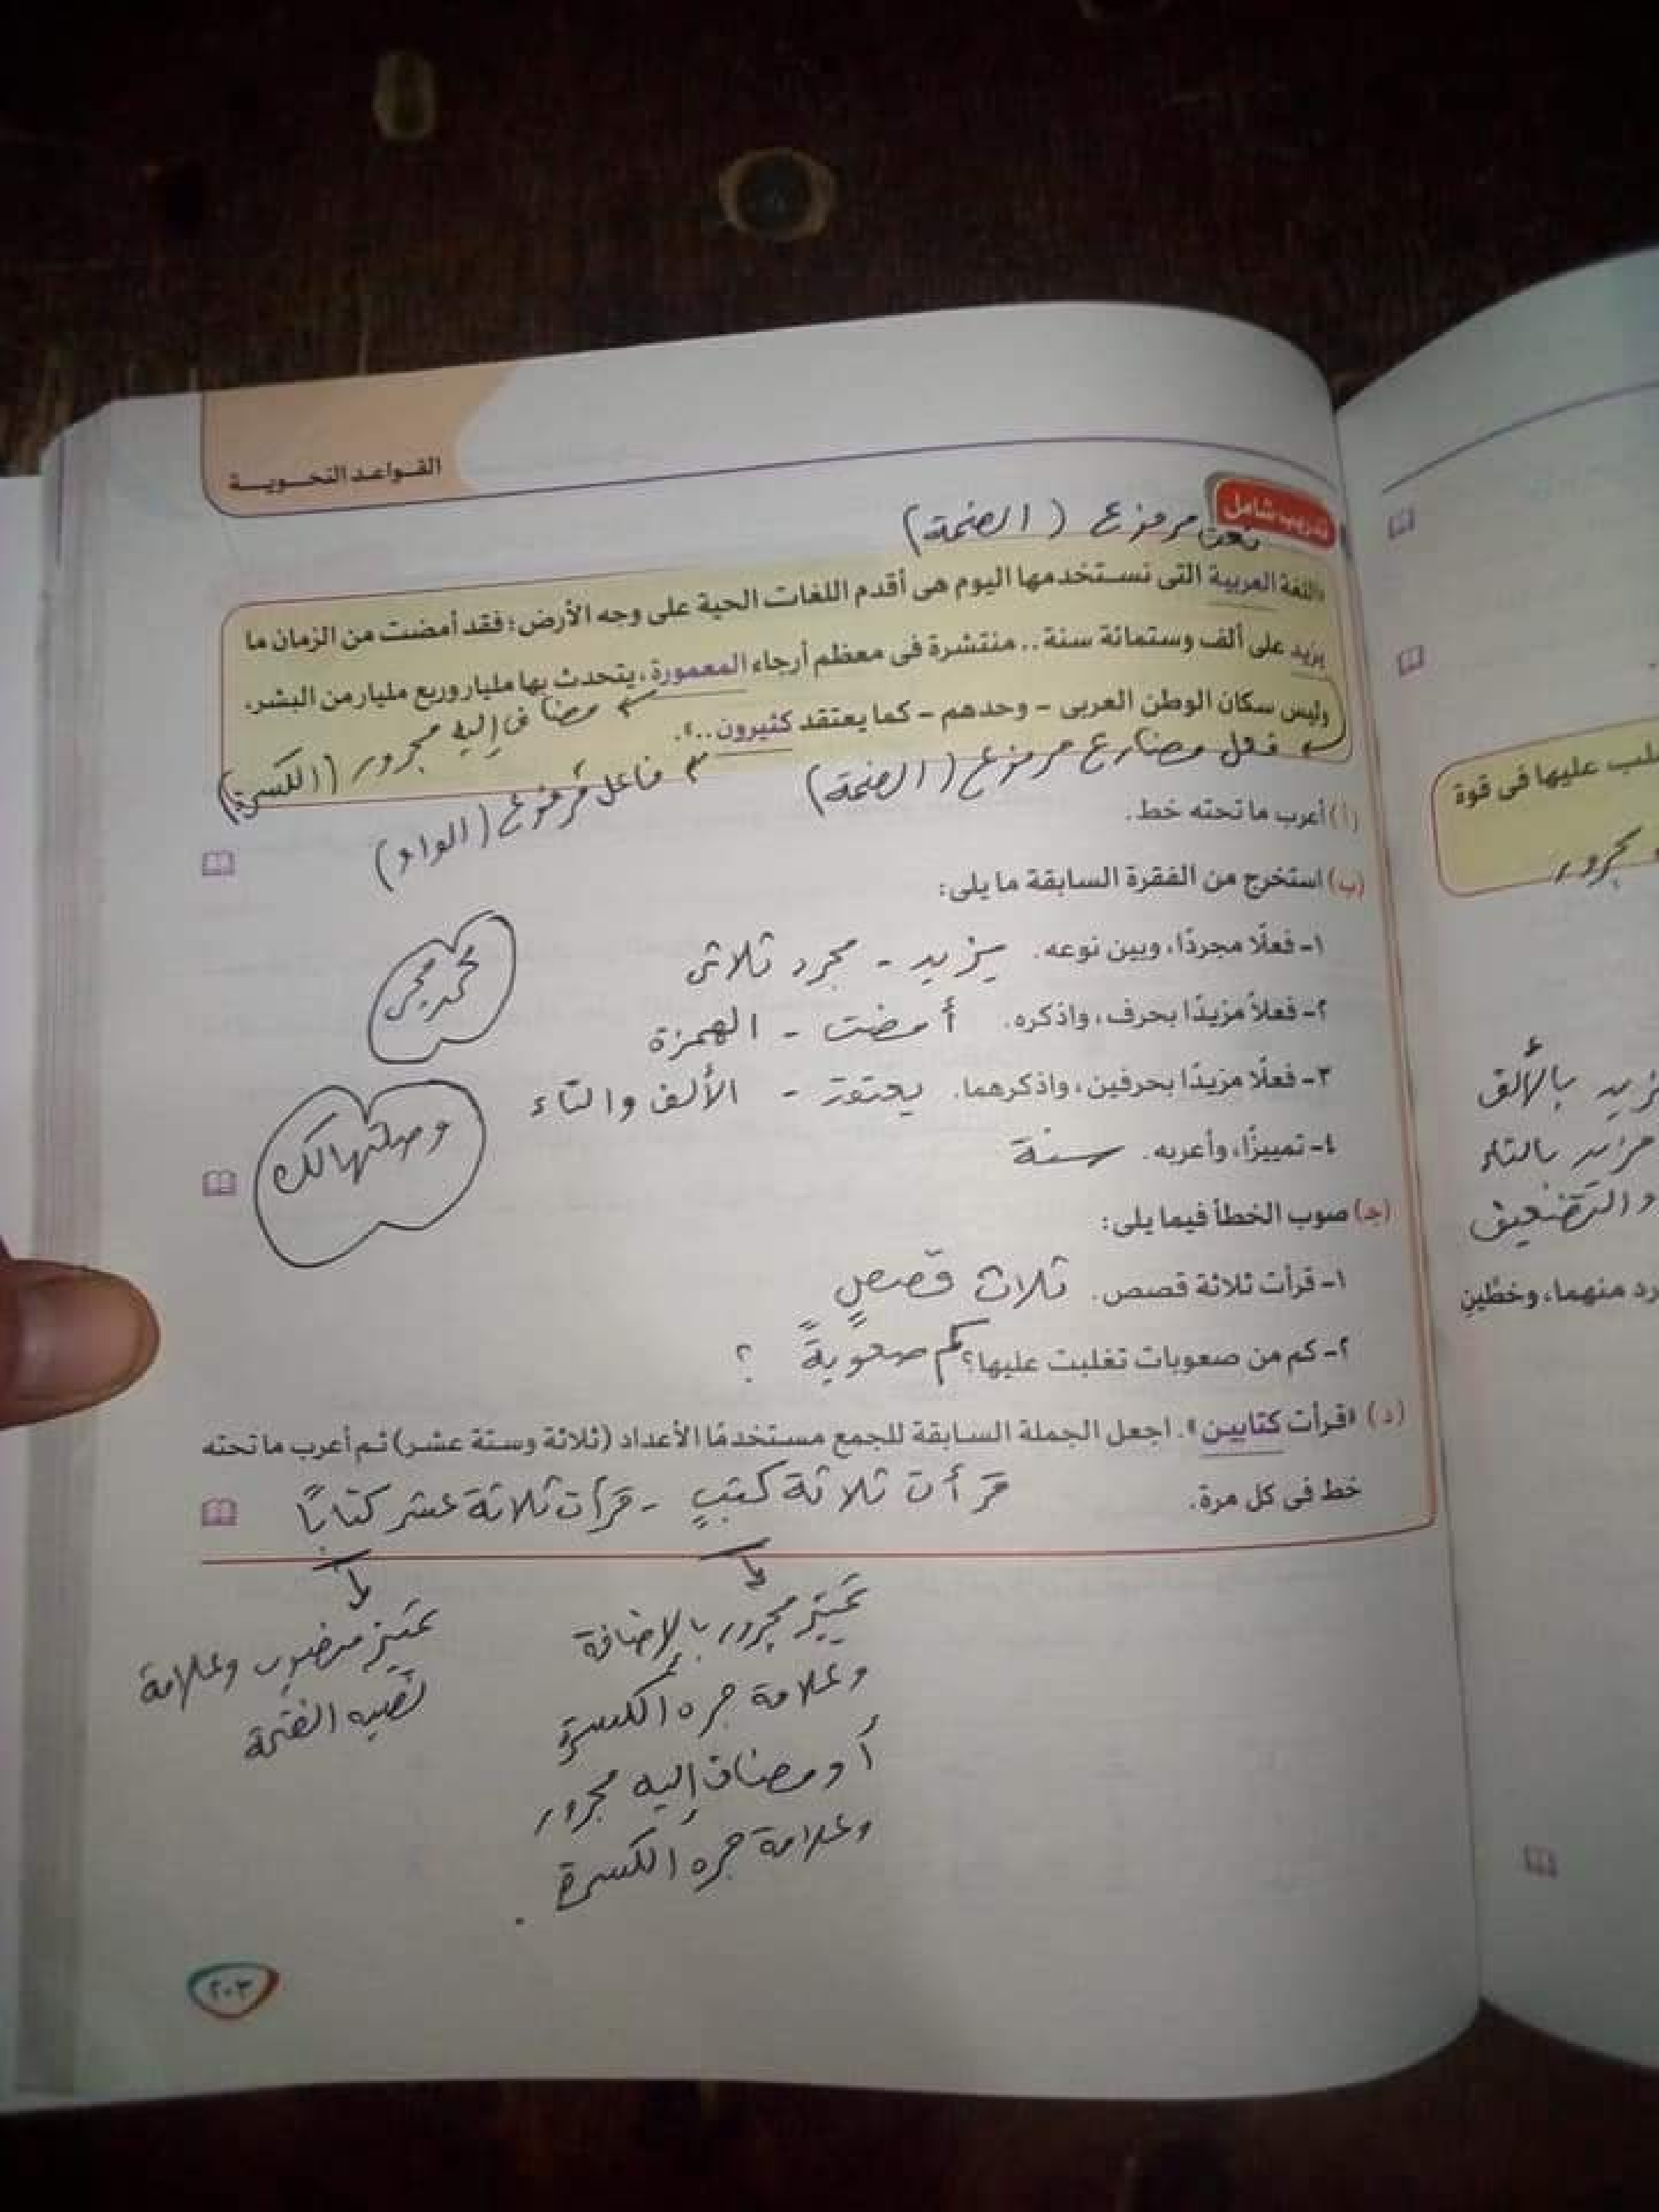 القواعد النحوية
تدريب شامل
نعت مرفوع (الضمة)
«اللغة العربية التى نستخدمها اليوم هى أقدم اللغات الحية على وجه الأرض؛ فقد أمضت من الزمان ما
يزيد على ألف وستمائة سنة .. منتشرة فى معظم أرجاء المعمورة، يتحدث بها مليار وربع مليار من البشر،
مضاف إليه مجرور (الكسرة)
وليس سكان الوطن العربى - وحدهم - كما يعتقد كثيرون ..».
فعل مضارع مرفوع (الضمة)
فاعل مرفوع (الواو)
(أ) أعرب ما تحته خط.
(ب) استخرج من الفقرة السابقة ما يلى:
١- فعلًا مجردًا، وبين نوعه. يزيد - مجرد ثلاثى
محمد مجر
٢- فعلًا مزيدًا بحرف، واذكره. أمضت - الهمزة
٣- فعلًا مزيدًا بحرفين، واذكرهما. يعتقد - الألف والتاء
وصلتهالك
٤- تمييزًا، وأعربه. سنة
(جـ) صوب الخطأ فيما يلى:
١- قرأت ثلاثة قصص. ثلاث قصصٍ
٢- كم من صعوبات تغلبت عليها؟ كم صعوبةً ؟
(د) «قرأت كتابين». اجعل الجملة السابقة للجمع مستخدمًا الأعداد (ثلاثة وستة عشر) ثم أعرب ما تحته
خط فى كل مرة. قرأت ثلاثة كتبٍ - قرأت ثلاثة عشر كتابًا
تمييز مجرور بالإضافة
وعلامة جره الكسرة
أو مضاف إليه مجرور
وعلامة جره الكسرة .
تمييز منصوب وعلامة
نصبه الفتحة
٢٠٣
لب عليها فى قوة
مجرور
مزيد بالألف
مزيد بالتاء
والتضعيف
رد منهما، وخطَّين